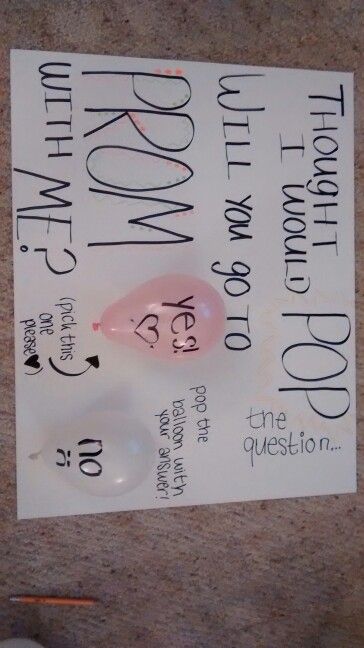 THOUGHT
I WOULD POP
the
question...
WILL YOU GO TO
PROM
WITH ME?
pop the
balloon with
your answer!
yes! ♡
(pick this
one
please♥)
no
:(